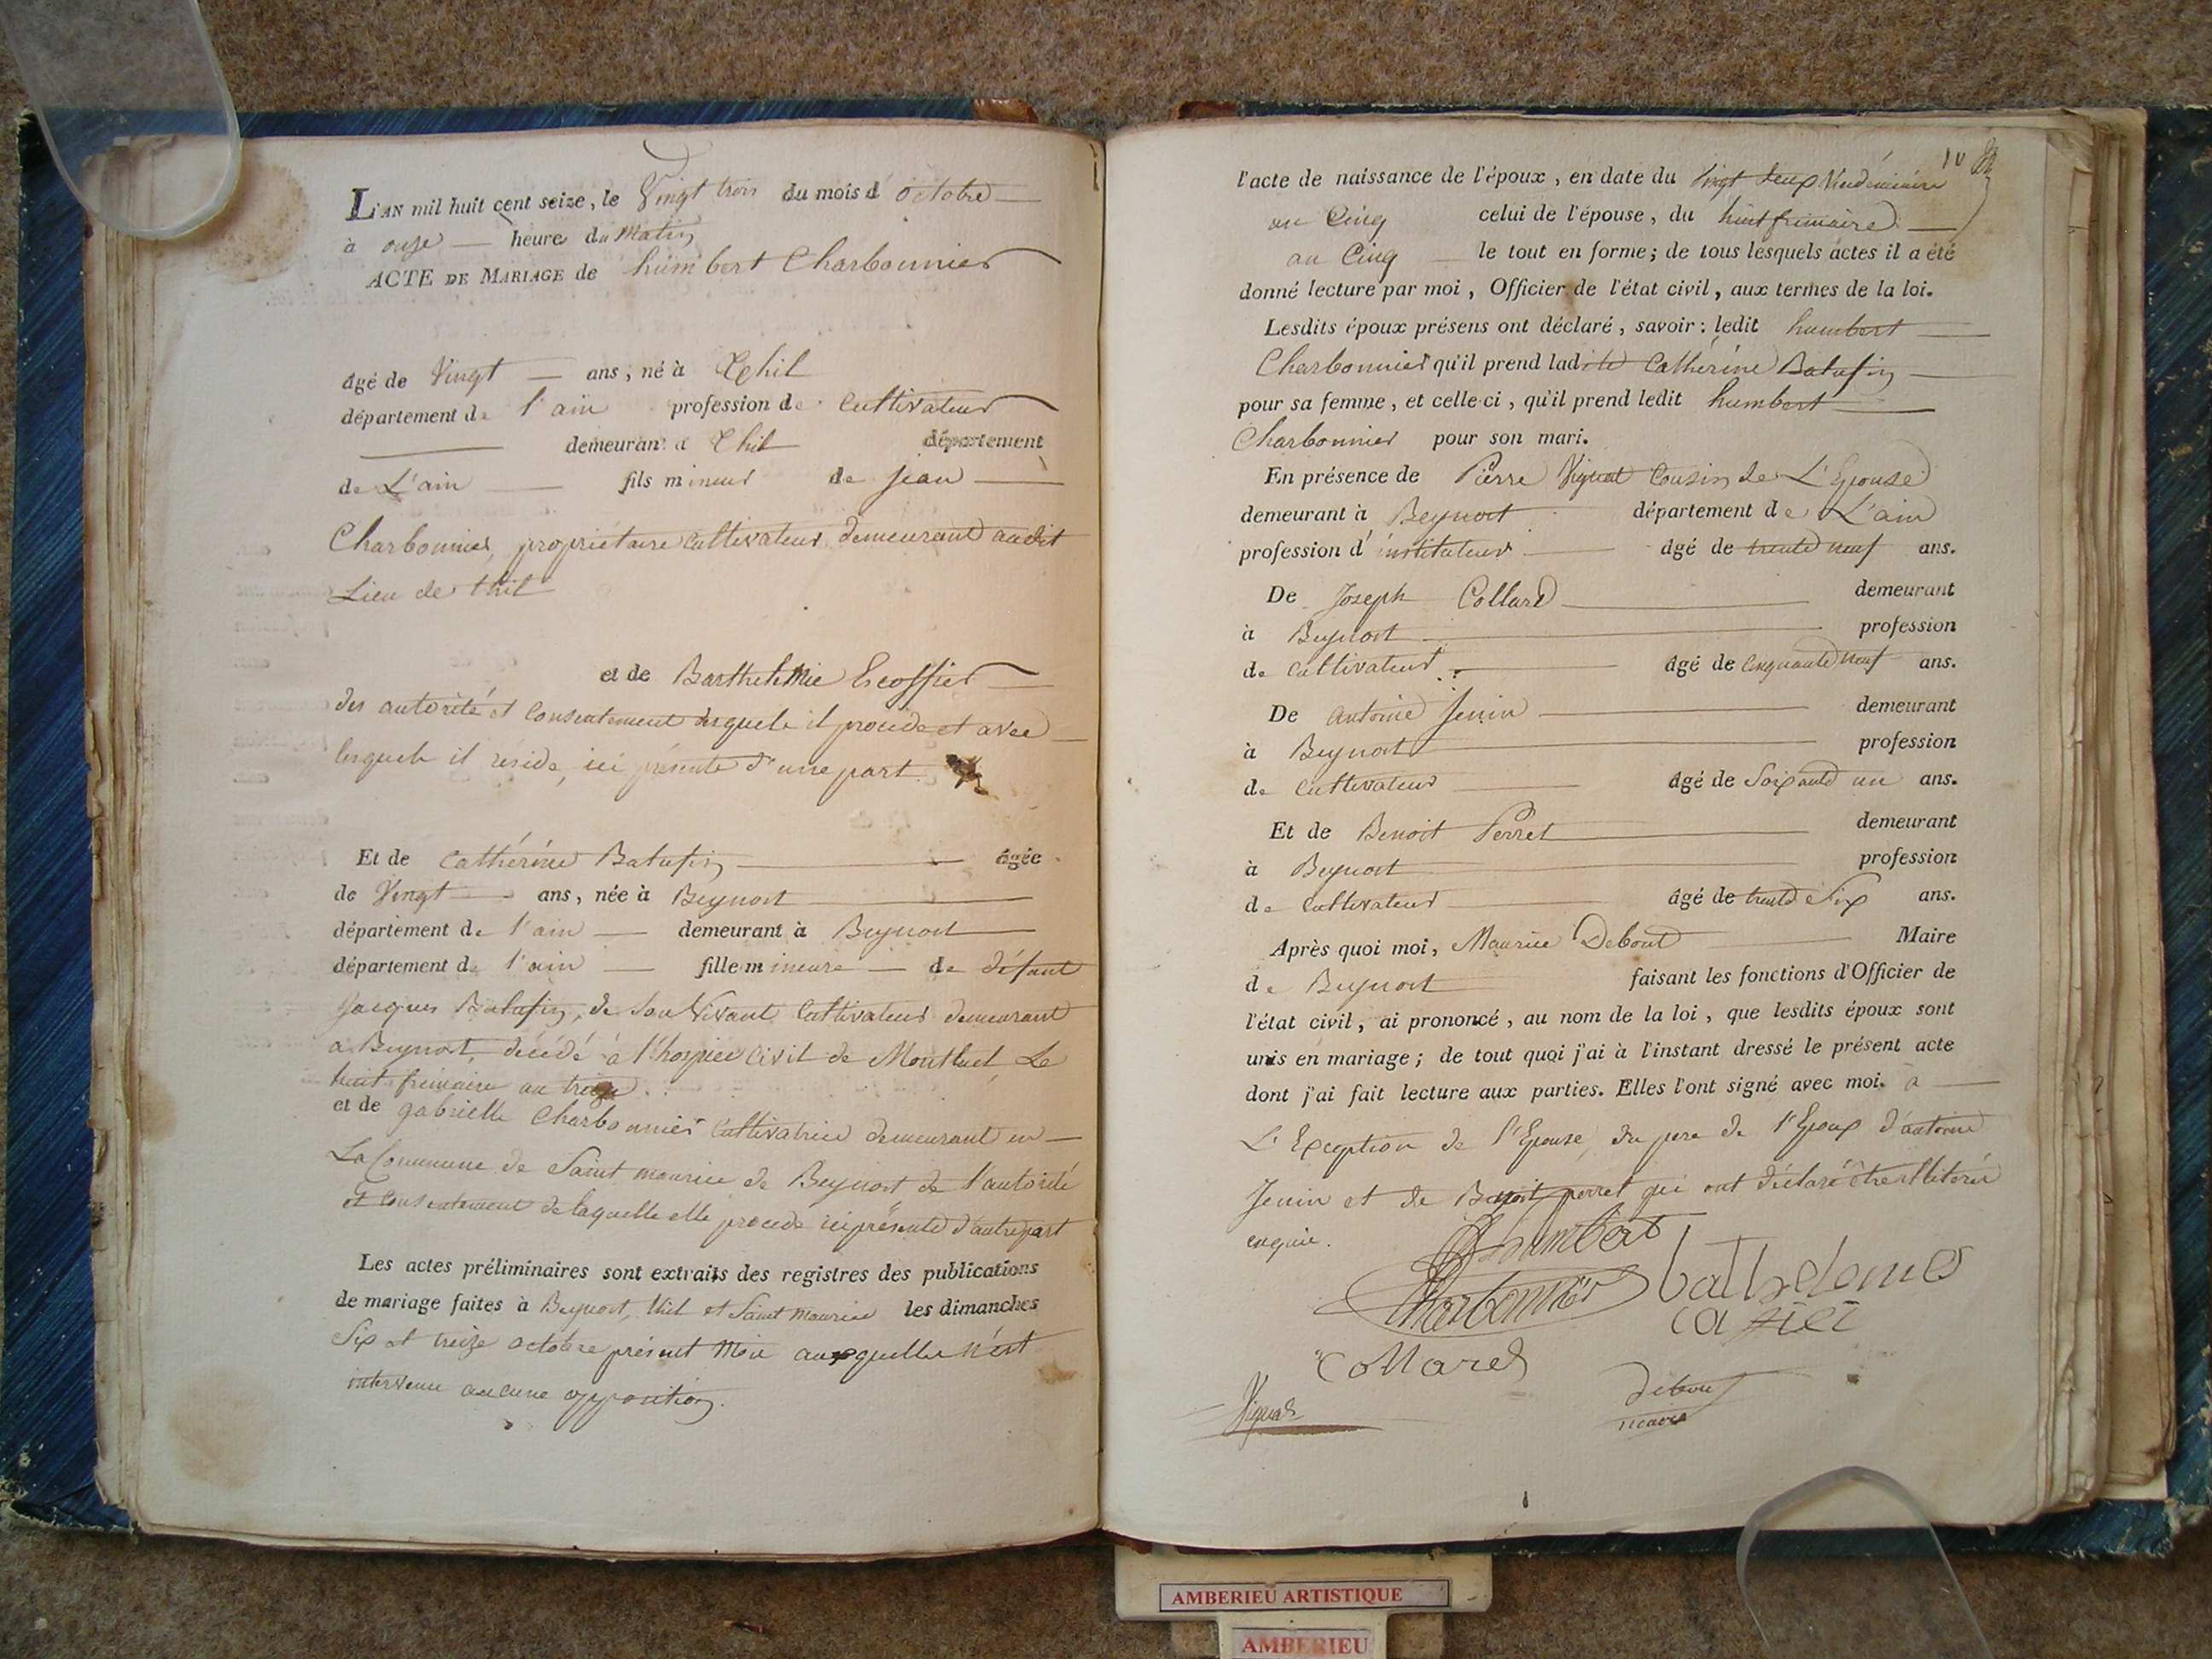 L'AN mil huit cent seize, le Vingt trois du mois d'octobre
à onze heure du Matin
ACTE DE MARIAGE de humbert Charbonnier
âgé de Vingt ans, né à Thil
département de l'ain profession de Cultivateur
demeurant à Thil département
de L'ain fils mineur de jean
Charbonnier, propriétaire Cultivateur demeurant audit
Lieu de thil
et de Barthelemie Escoffier
des autorité et Consentement desquels il procède et avec
lesquels il réside, ici présents d'une part
Et de Cathérine Batufin âgée
de Vingt ans, née à Beynost
département de l'ain demeurant à Beynost
département de l'ain fille mineure de défunt
Jacques Batufin, de Son Vivant Cultivateur demeurant
a Beynost, décédé à l'hospice Civil de Montluel Le
huit frimaire an treize
et de gabrielle Charbonnier Cultivatrice demeurant en
La Commune de Saint maurice de Beynost de l'autorité
et Consentement de laquelle elle procède ici présente d'autre part
Les actes préliminaires sont extraits des registres des publications
de mariage faites à Beynost, thil et Saint Maurice les dimanches
Six et treize octobre présent Mois auxquelles n'est
intervenu aucune opposition.
10
l'acte de naissance de l'époux, en date du Vingt deux Vendémiaire
an Cinq celui de l'épouse, du huit frimaire
an Cinq le tout en forme; de tous lesquels actes il a été
donné lecture par moi, Officier de l'état civil, aux termes de la loi.
Lesdits époux présens ont déclaré, savoir: ledit humbert
Charbonnier qu'il prend ladite Cathérine Batufin
pour sa femme, et celle-ci, qu'il prend ledit humbert
Charbonnier pour son mari.
En présence de Pierre Vignat Cousin de L'Epouse
demeurant à Beynost département de L'ain
profession d'instituteur âgé de trente neuf ans.
De Joseph Collard demeurant
à Beynost profession
de Cultivateur âgé de Cinquante neuf ans.
De antoine Jenin demeurant
à Beynost profession
de Cultivateur âgé de Soixante un ans.
Et de Benoit Perret demeurant
à Beynost profession
de Cultivateur âgé de trente Six ans.
Après quoi moi, Maurice Debout Maire
de Beynost faisant les fonctions d'Officier de
l'état civil, ai prononcé, au nom de la loi, que lesdits époux sont
unis en mariage; de tout quoi j'ai à l'instant dressé le présent acte
dont j'ai fait lecture aux parties. Elles l'ont signé avec moi. a
L'Exception de l'Epouse, du pere de l'Epoux d'antoine
Jenin et de Benoit perret qui ont déclaré être illiterés
enquis.
humbert
Charbonnier
Collared
Vignat
AMBERIEU ARTISTIQUE
AMBERIEU